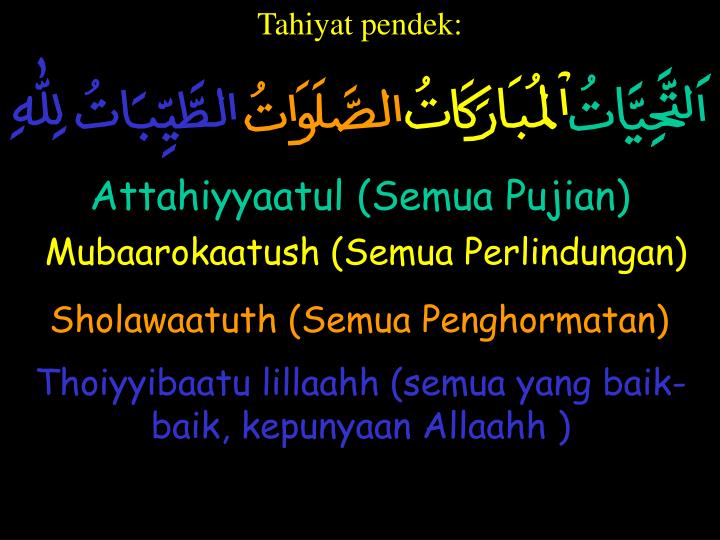 Tahiyat pendek:
اَلتَّحِيَّاتُ ٱلْمُبَارَكَاتُ الصَّلَوَاتُ الطَّيِّبَاتُ لِلّٰهِ
Attahiyyaatul (Semua Pujian)
Mubaarokaatush (Semua Perlindungan)
Sholawaatuth (Semua Penghormatan)
Thoiyyibaatu lillaahh (semua yang baik-
baik, kepunyaan Allaahh )